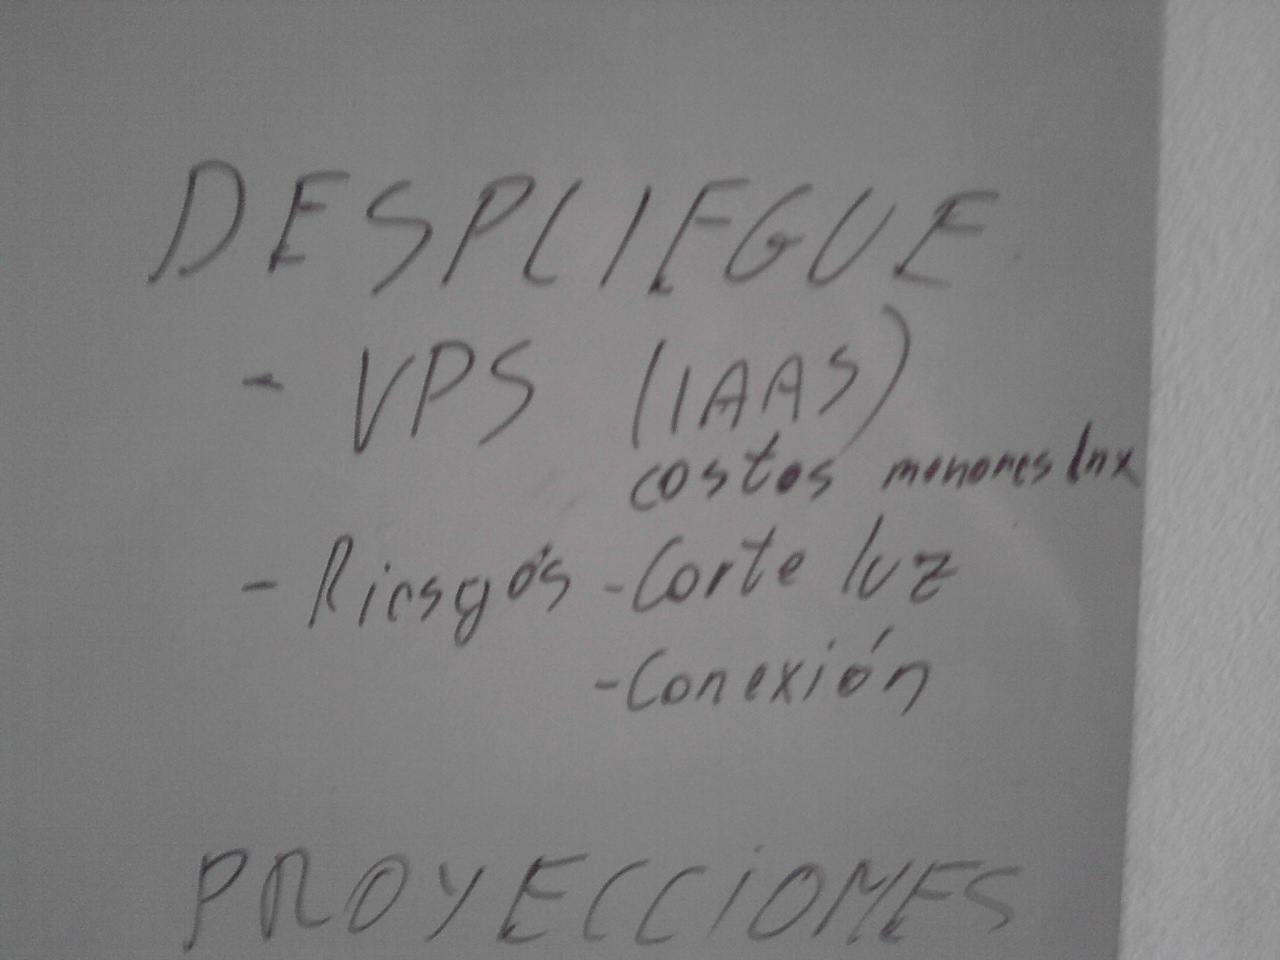 DESPLIEGUE
- VPS (IAAS)
costos menores lnx
- Riesgos - Corte luz
- Conexión
PROYECCIONES